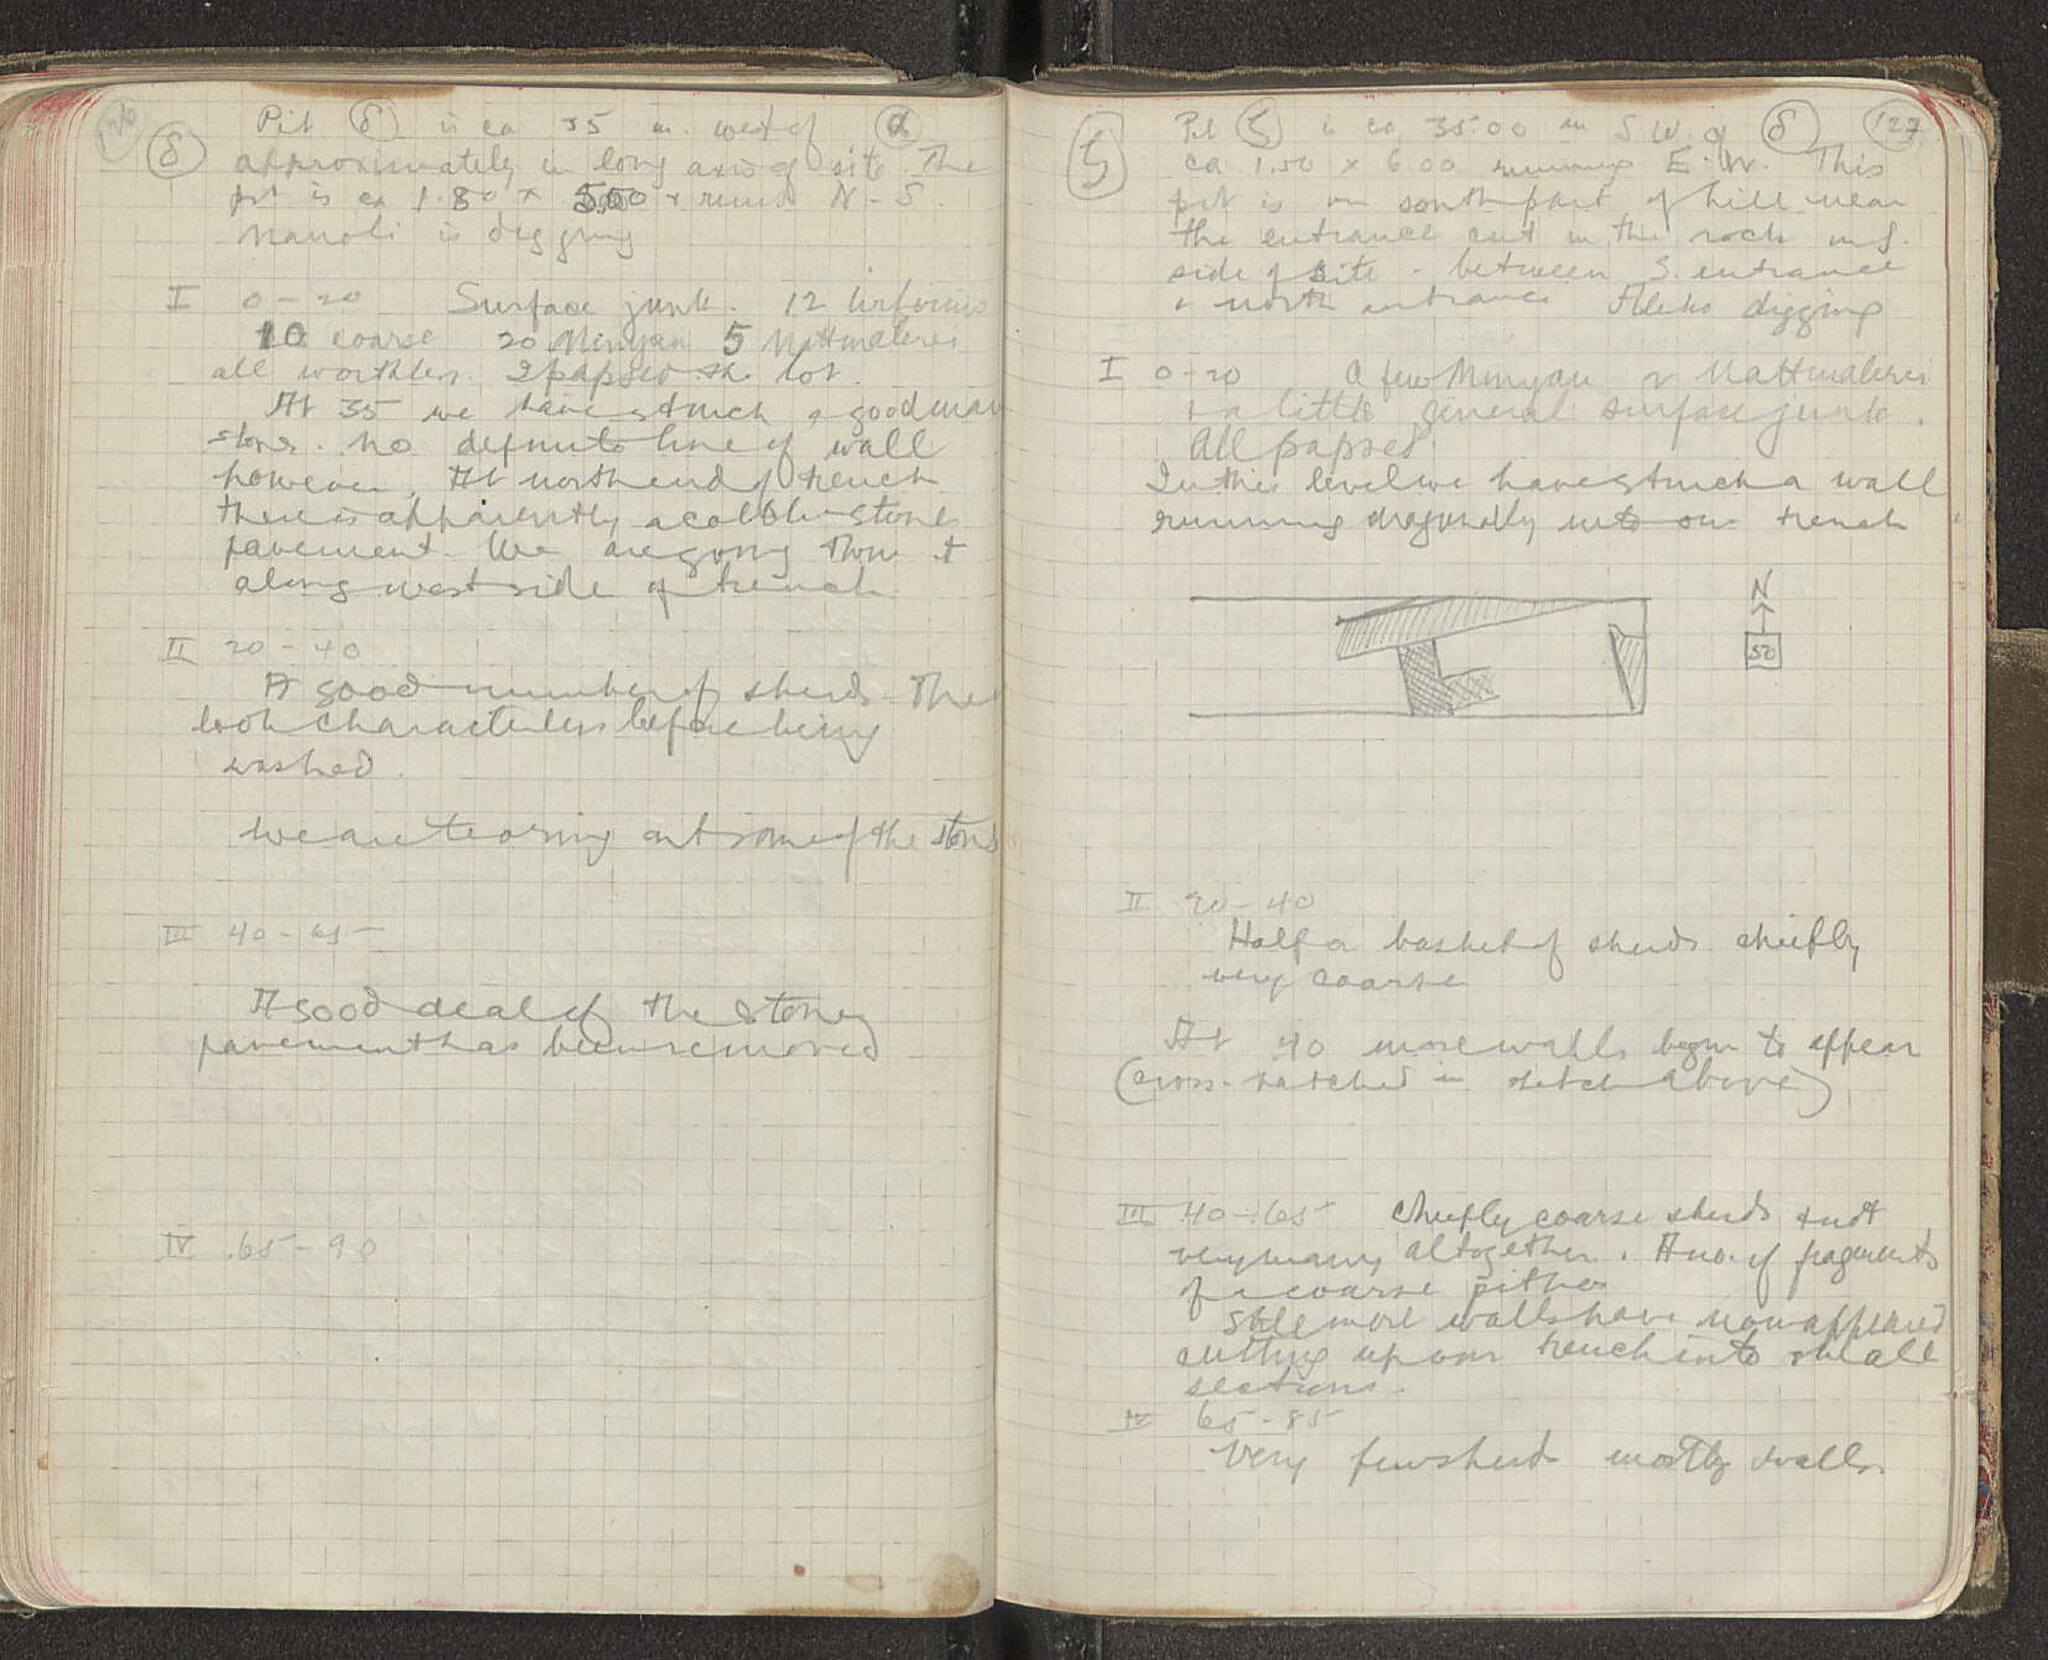 126
δ
Pit δ is ca 35 m. west of α
approximately in long axis of site. The
pit is ca 1.80 x 5.50 & runs N-S.
Manoli is digging
I 0-20 Surface junk. 12 Urfirnis
10 coarse 20 Minyan 5 Mattmalerei
all worthless. I papsed the lot.
At 35 we have struck a good many
stones. No definite line of wall
however. At north end of trench
there is apparently a cobble stone
pavement. We are going thru it
along west side of trench
II 20-40
A good number of sherds. They
look characterless before being
washed.
We are tearing out some of the stones
III 40-65
A good deal of the stoney
pavement has been removed
IV .65-90
127
ζ
Pit ζ is ca 35.00 m S W. of δ
ca 1.50 x 6.00 running E.-W. This
pit is on south part of hill near
the entrance cut in the rock on S.
side of site - between S. entrance
& north entrance digging
I 0-20 A few Minyan & Mattmalerei
& a little general surface junk.
All papsed.
In this level we have struck a wall
running diagonally into our trench
N
50
II 20-40
Half a basket of sherds chiefly
very coarse
At 40 more walls begin to appear
(cross-hatched in sketch above)
III 40-.65 Chiefly coarse sherds & not
very many altogether. A no. of fragments
of a coarse pithos
Still more walls have now appeared
cutting up our trench into small
sections.
IV 65-85
Very few sherds mostly walls.